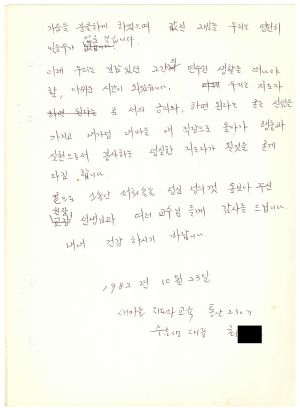 가슴을 뭉클하게 하였으며 값진 교훈을 우리는 영원히
잊을수가 없을 것입니다.
이제 우리는 보람있던 그간의 연수원 생활을 떠나야
할, 아쉬운 시간이 되었습니다. 우리는 지도자
하면 된다는 굳은 신념을
가지고 내가정 내마을 내 직장으로 돌아가 행동과
실천으로서 봉사하는 성실한 지도자가 될것을 굳게
다짐 합니다.
끝으로 소홀한 저희들을 성심 성의껏 돌보아 주신
원장 선생님과 여러 교수님들께 감사를 드립니다.
내내 건강 하시기 바랍니다.
1982 년 10 월 23일
새마을 지도자교육
수료생 대표